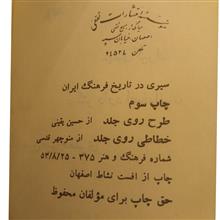 انتشارات ثقفی
اصفهان
تلفن ۲۴۵۲۸
سیری در تاریخ فرهنگ ایران
چاپ سوم
طرح روی جلد از حسین یقینی
خطاطی روی جلد از منوچهر قدسی
شماره فرهنگ و هنر ۳۷۵ - ۵۳/۸/۲۵
چاپ از افست نشاط اصفهان
حق چاپ برای مؤلفان محفوظ